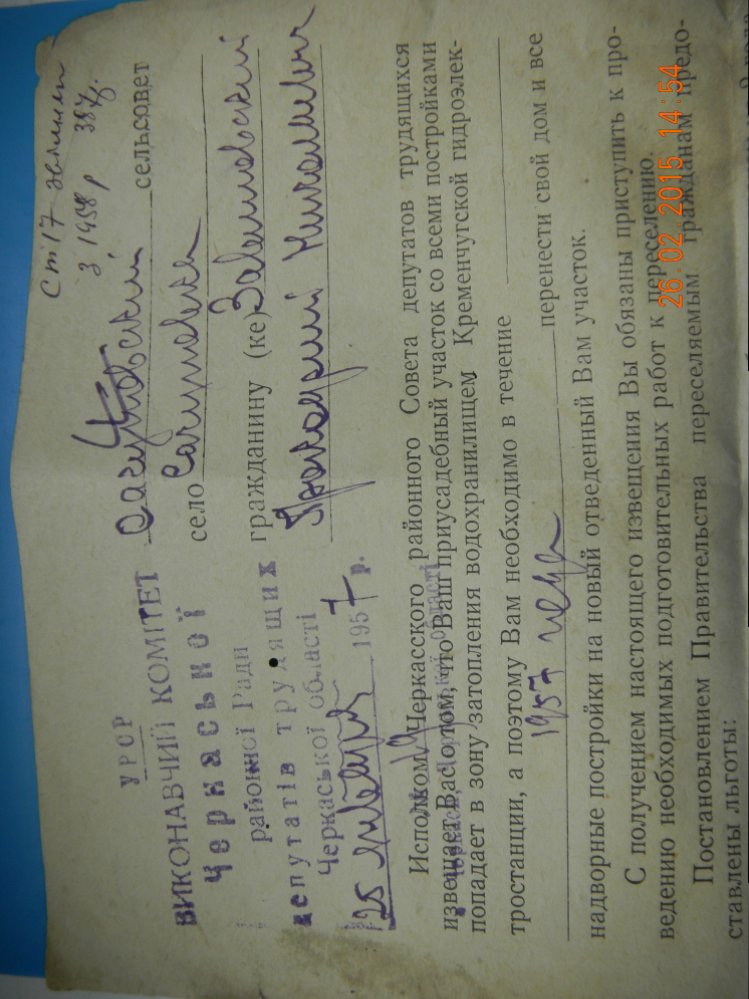 УРСР
ВИКОНАВЧИЙ КОМІТЕТ
Черкаської
районної Ради
депутатів трудящих
Черкаської області
25 января 1957 р.
19
Черкаської області
Ст 17
з 1958 р
сельсовет
село
гражданину (ке)
Прокофий Николаевич
Исполком Черкасского районного Совета депутатов трудящихся
извещает Вас о том, что Ваш приусадебный участок со всеми постройками
попадает в зону затопления водохранилищем Кременчугской гидроэлек-
тростанции, а поэтому Вам необходимо в течение
1957 года перенести свой дом и все
надворные постройки на новый отведенный Вам участок.
С получением настоящего извещения Вы обязаны приступить к про-
ведению необходимых подготовительных работ к переселению.
Постановлением Правительства переселяемым гражданам предо-
ставлены льготы:
26.02.2015 14:54